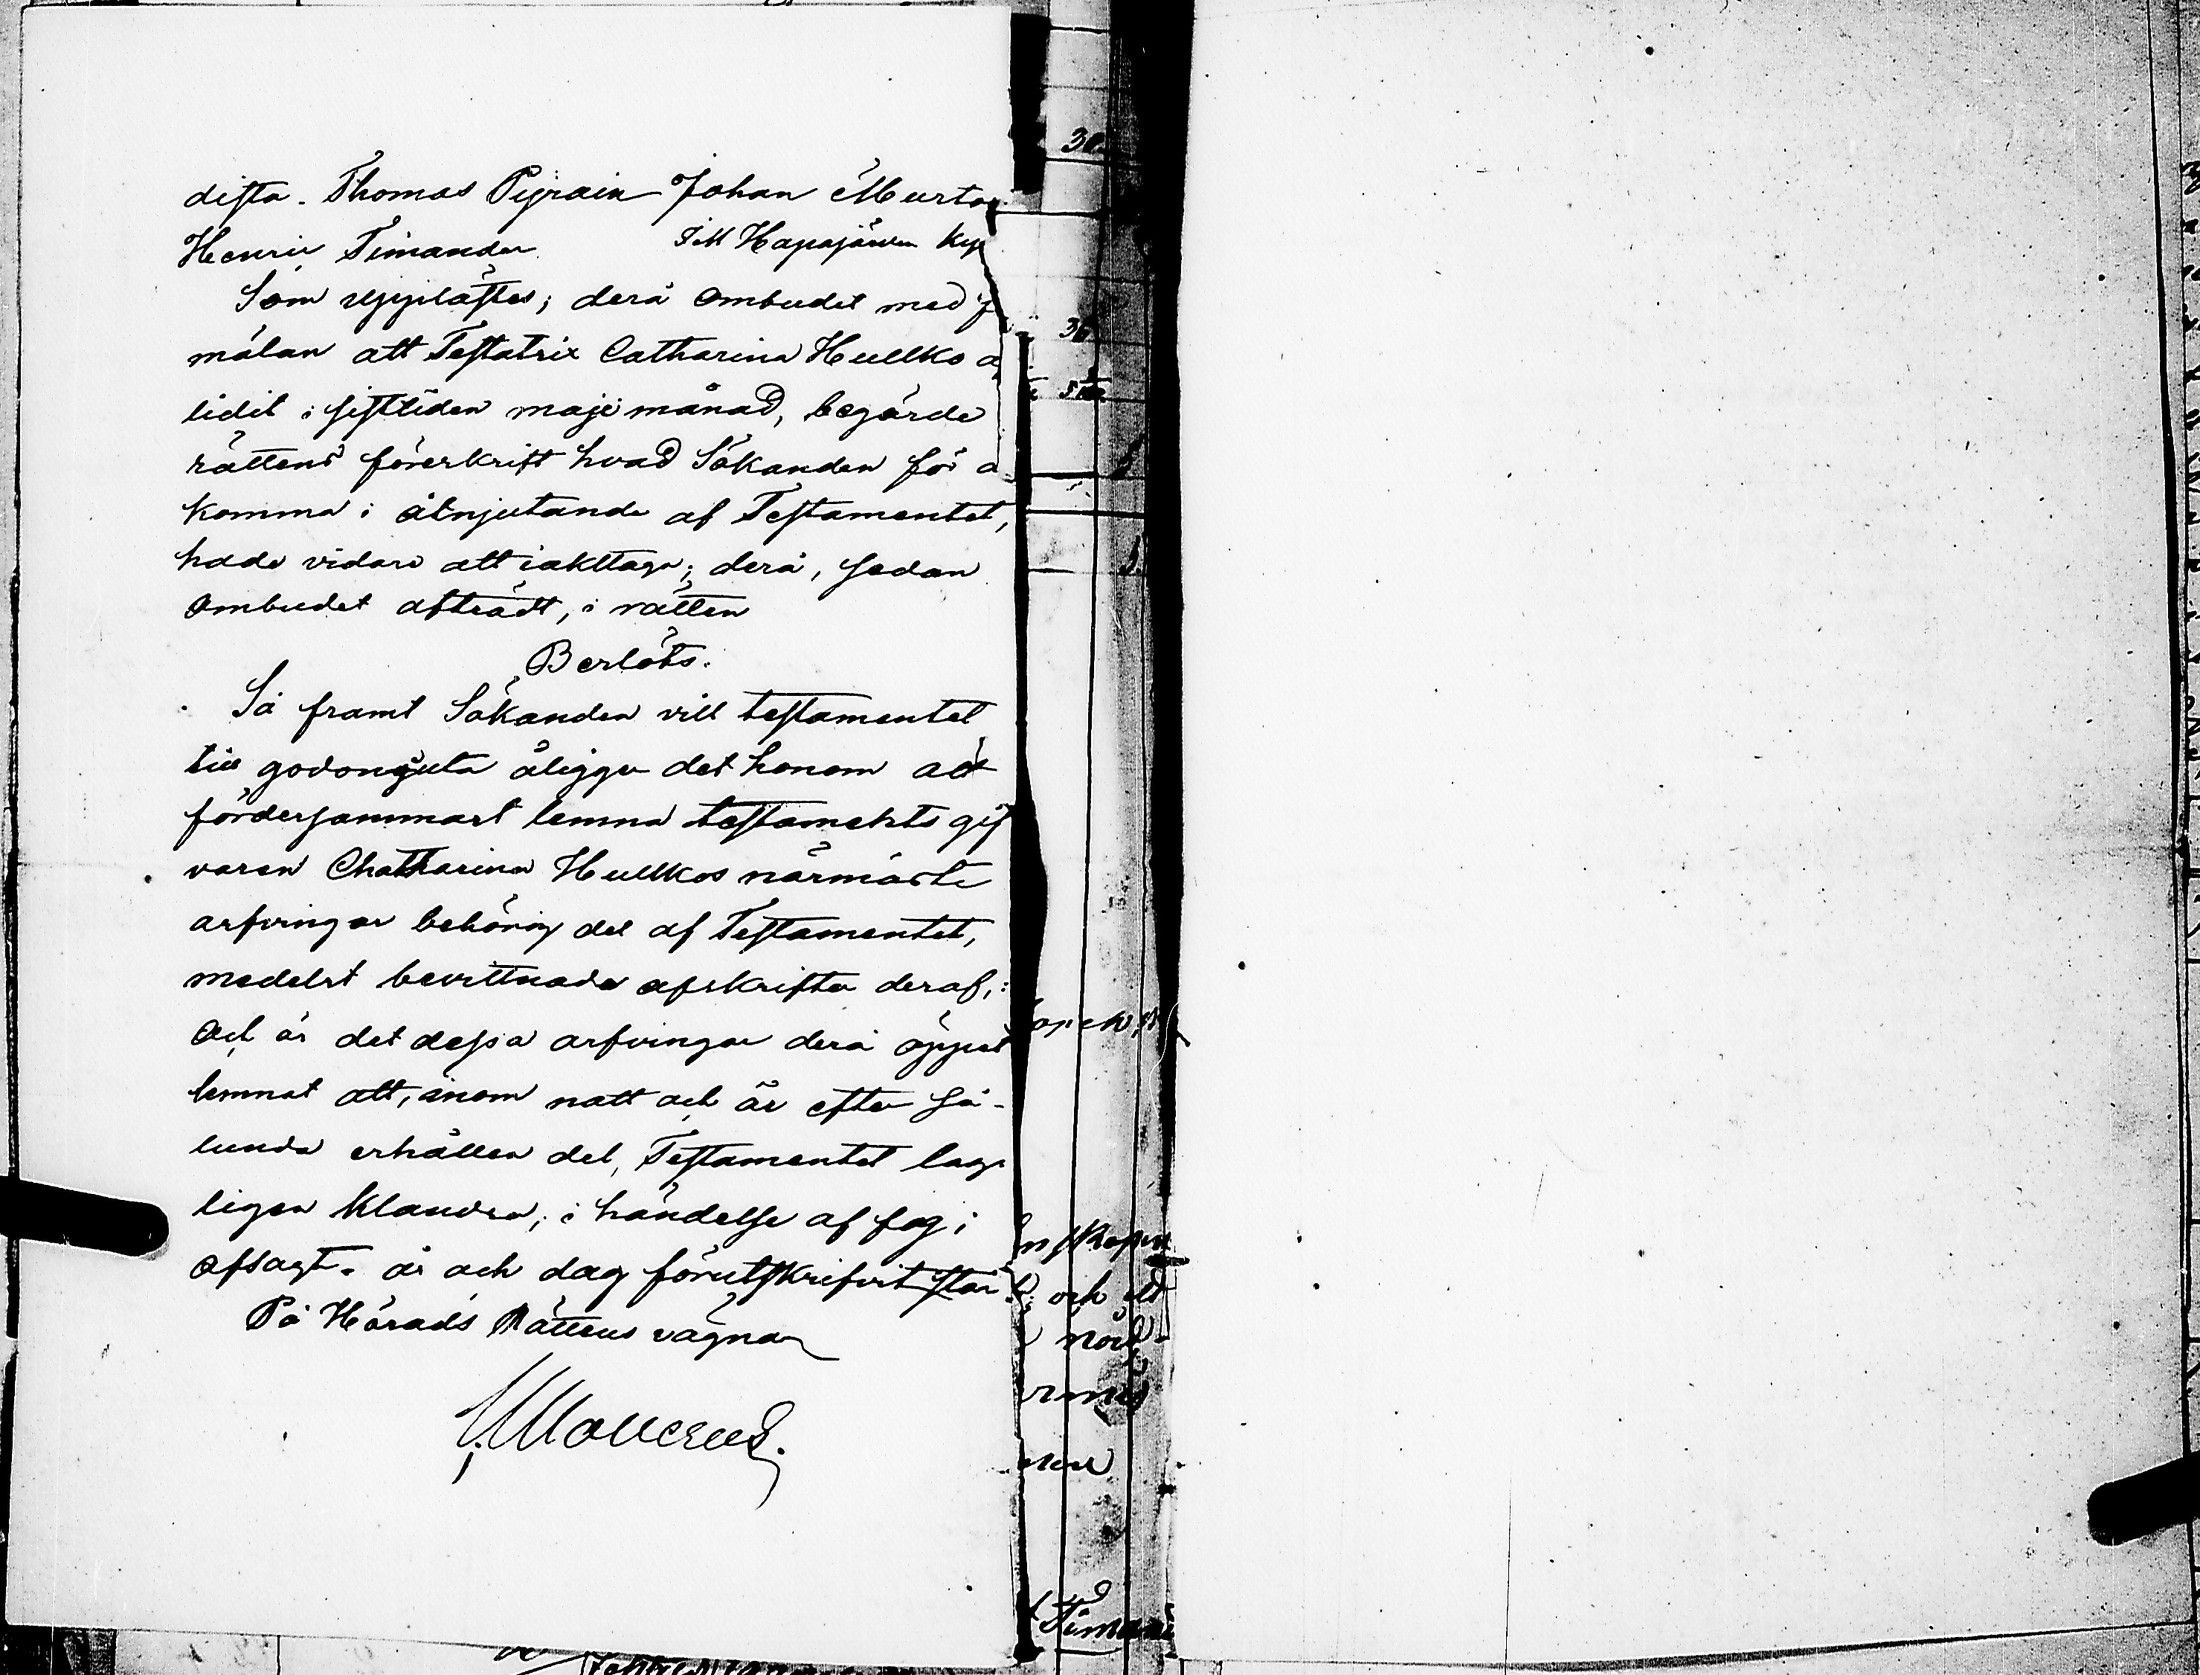 dista. Thomas Pyräin Johan Murto
Henric Timander. I M Hapajärven
Som upplästes; derå Ombudet med
mälan att Testatrix Catharina Hullko
lidit i sisttiden maji månad, begärde
rättens föreskrift hvad Sökanden för a
komma i åtnjutande af Testamentet,
hade vidare att iakttaga; derå, sedan
Ombudet afträdt, i rätten
Beslöts:
Så framt Sökanden vill testamentet
till godonjuta åligger det honom att
fördersammast lemna testaments gif
varen Chattarina Hullkos närmaste
arfvingar behörig del af Testamentet,
medelst bevittnade afskrifter deraf,
och är det dessa arfvingar derå öppet
lemnat att, inom natt och år efter så-
lunda erhållen del, Testamentet lag-
ligen klandra, i händelse af fog;
Afsagt. år och dag förutskrifvit står.
På Härads Rättens vägnar
30
36
och
Timan